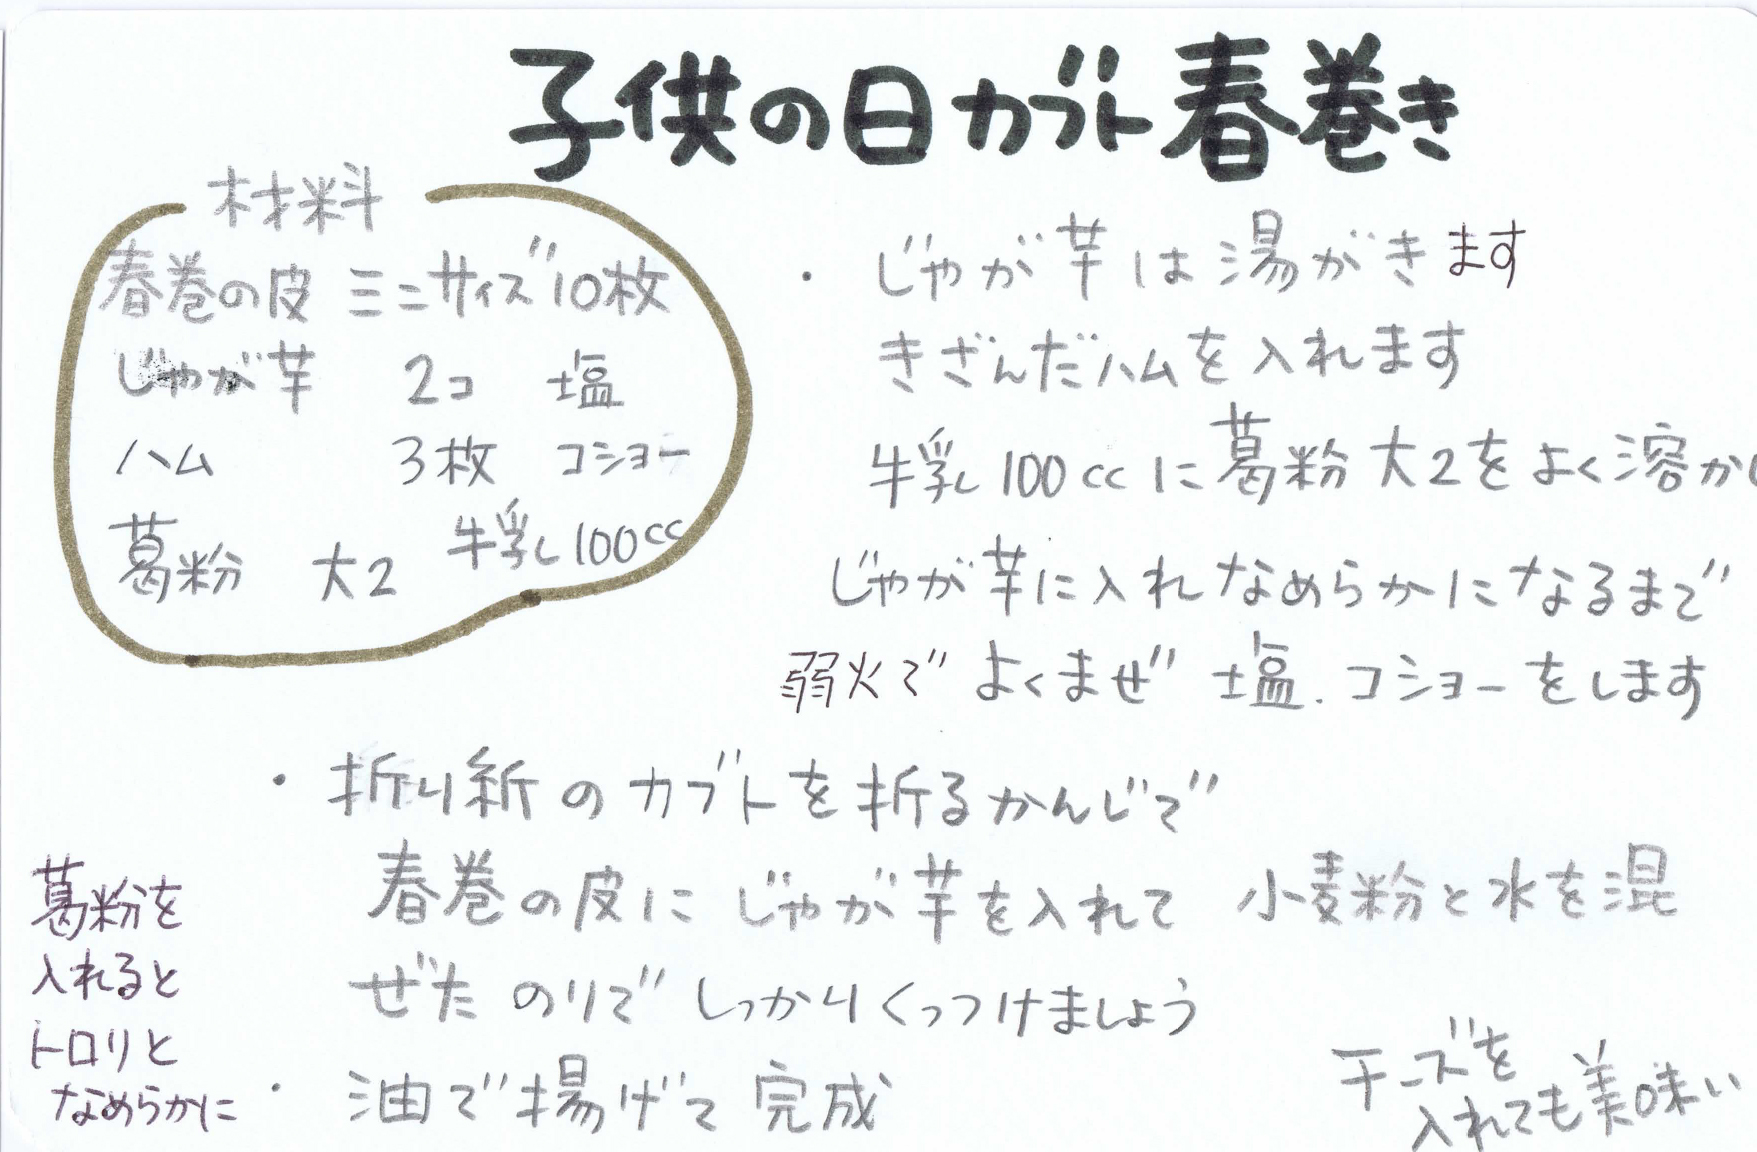 子供の日カブト春巻き
材料
春巻の皮 ミニサイズ10枚
じゃが芋 2コ 塩
ハム 3枚 コショー
葛粉 大2 牛乳100cc
・じゃが芋は湯がきます
きざんだハムを入れます
牛乳100ccに葛粉大2をよく溶かし
じゃが芋に入れなめらかになるまで
弱火でよくまぜ塩.コショーをします
・折り紙のカブトを折るかんじで
春巻の皮にじゃが芋を入れて 小麦粉と水を混
ぜたのりでしっかりくっつけましょう
・油で揚げて完成
葛粉を
入れると
トロリと
なめらかに
チーズを
入れても美味い